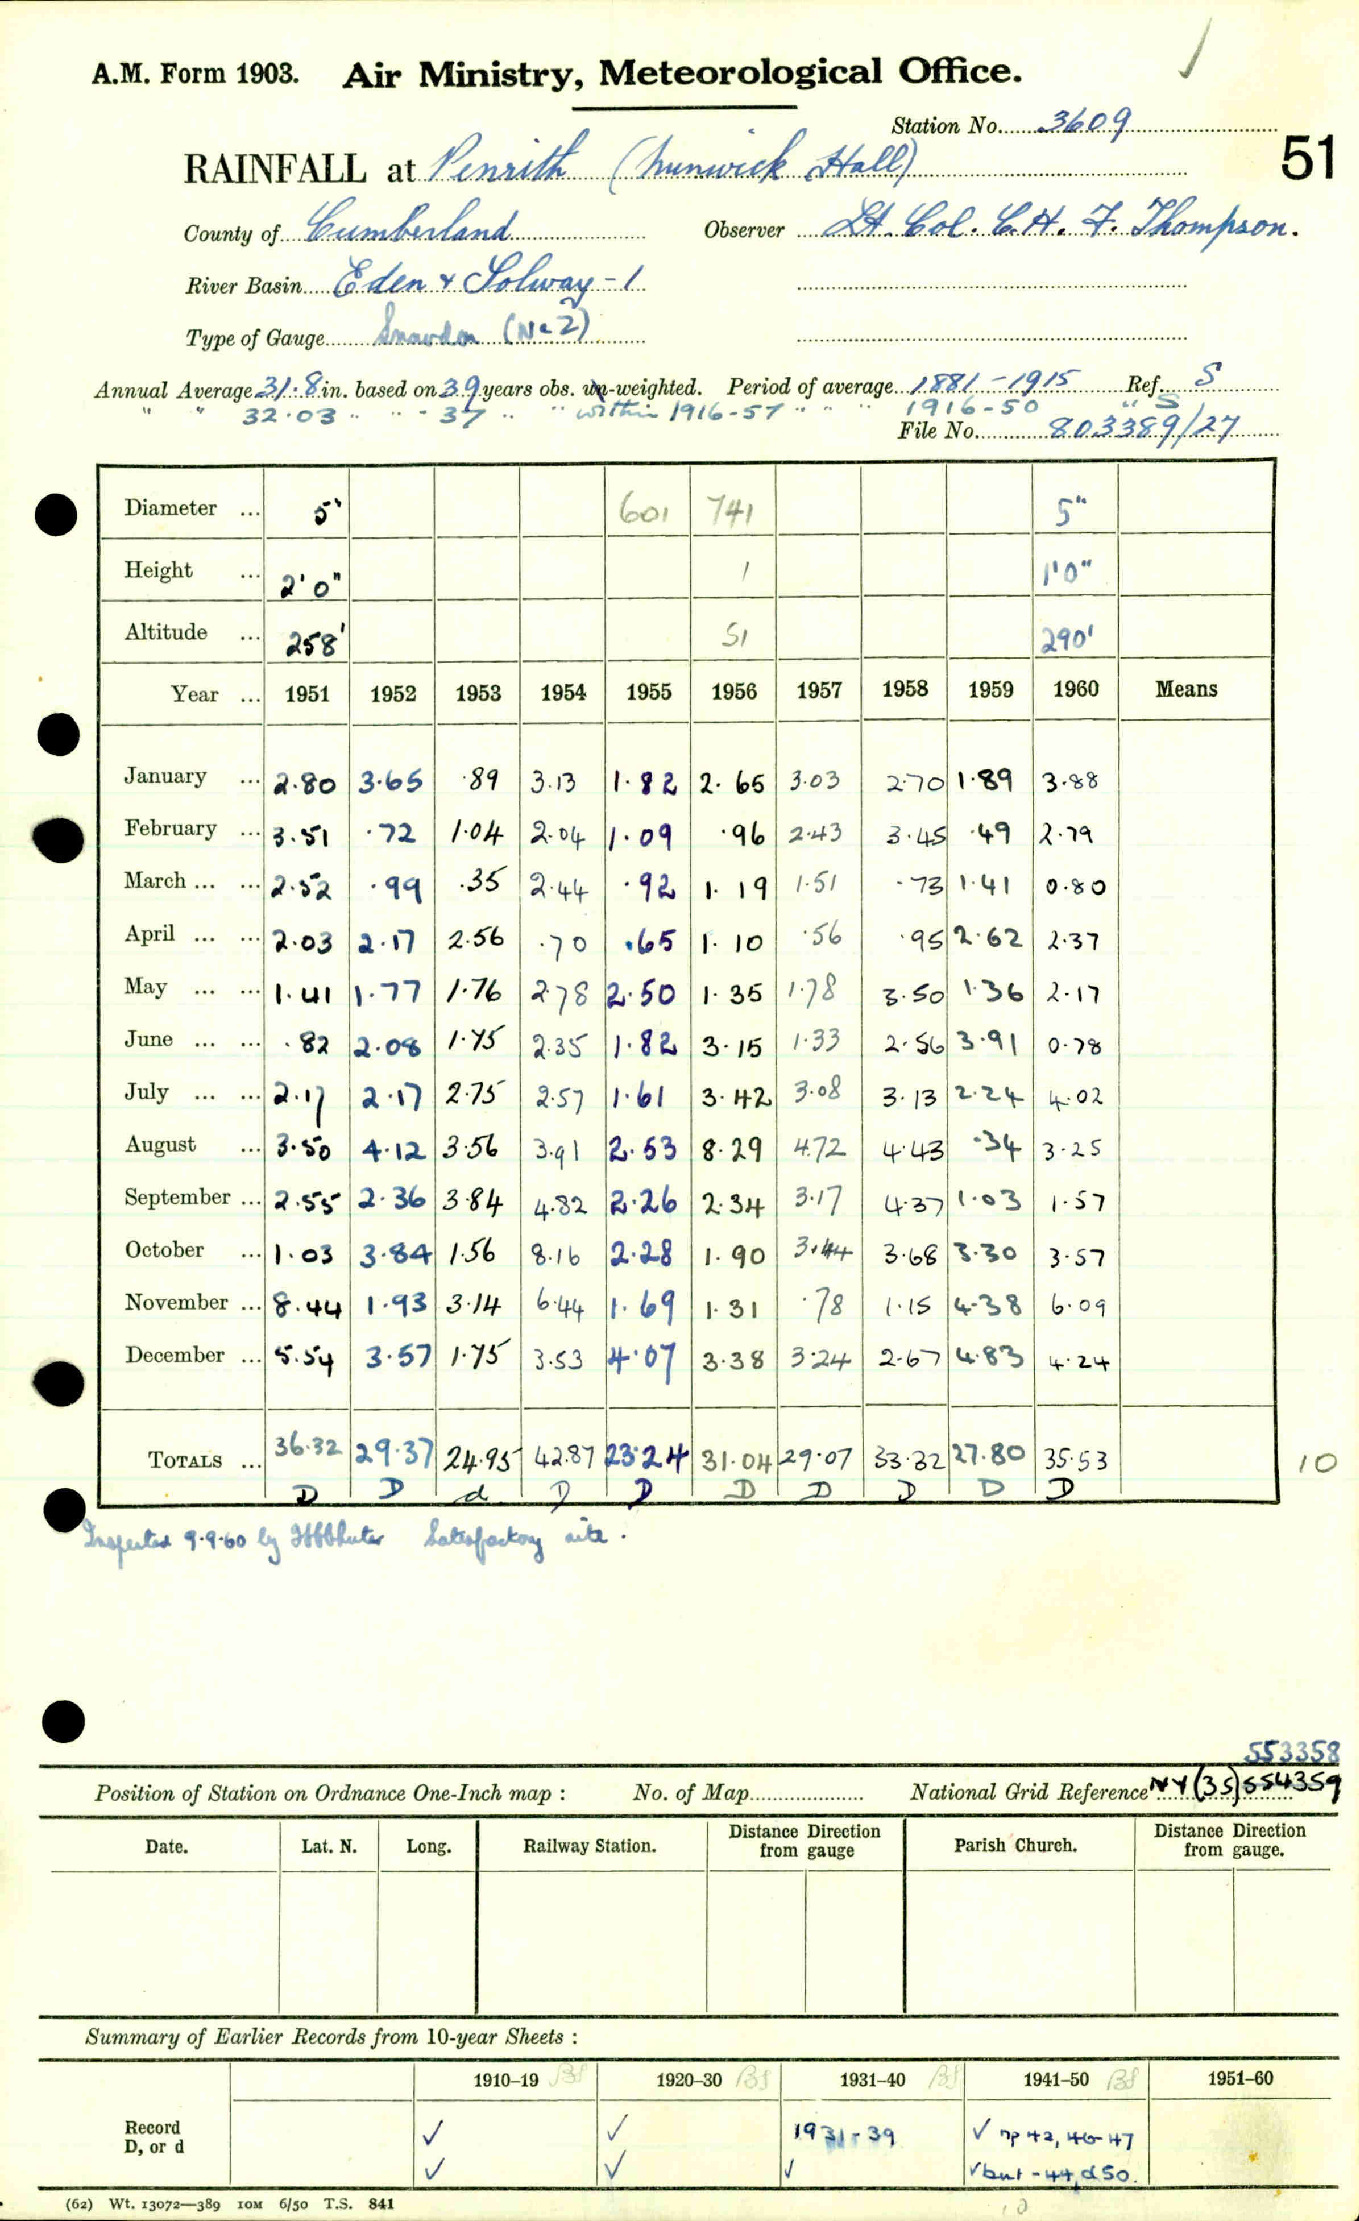 A.M. Form 1903. Air Ministry, Meteorological Office.
Station No. 3609
51
RAINFALL at Penrith (Nunwick Hall)
County of Cumberland Observer Lt. Col. C.H.F. Thompson.
River Basin Eden & Solway - 1
Type of Gauge Snowdon (No 2)
Annual Average 31.8 in. based on 39 years obs. un-weighted. Period of average 1881-1915 Ref. S
" " 32.03 " " " 37 " " within 1916-57 " " " 1916-50 " S
File No. 803389/27
Diameter ... 5" 601 741 5"
Height ... 2'0" 1 1'0"
Altitude ... 258' 51 290'
Year ... 1951 1952 1953 1954 1955 1956 1957 1958 1959 1960 Means
January ... 2.80 3.65 .89 3.13 1.82 2.65 3.03 2.70 1.89 3.88
February ... 3.51 .72 1.04 2.04 1.09 .96 2.43 3.45 .49 2.79
March ... ... 2.52 .99 .35 2.44 .92 1.19 1.51 .73 1.41 0.80
April ... ... 2.03 2.17 2.56 .70 .65 1.10 .56 .95 2.62 2.37
May ... ... 1.41 1.77 1.76 2.78 2.50 1.35 1.78 3.50 1.36 2.17
June ... ... .82 2.08 1.75 2.35 1.82 3.15 1.33 2.56 3.91 0.78
July ... ... 2.17 2.17 2.75 2.57 1.61 3.42 3.08 3.13 2.24 4.02
August ... 3.50 4.12 3.56 3.91 2.53 8.29 4.72 4.43 .34 3.25
September ... 2.55 2.36 3.84 4.82 2.26 2.34 3.17 4.37 1.03 1.57
October ... 1.03 3.84 1.56 8.16 2.28 1.90 3.44 3.68 3.30 3.57
November ... 8.44 1.93 3.14 6.44 1.69 1.31 .78 1.15 4.38 6.09
December ... 5.54 3.57 1.75 3.53 4.07 3.38 3.24 2.67 4.83 4.24
TOTALS ... 36.32 29.37 24.95 42.87 23.24 31.04 29.07 33.32 27.80 35.53 10
D D d D D D D D D D
Inspected 9.9.60 by Satisfactory site.
553358
Position of Station on Ordnance One-Inch map : No. of Map National Grid Reference NY(35)554359
Date. Lat. N. Long. Railway Station. Distance from gauge Direction Parish Church. Distance from gauge. Direction
Summary of Earlier Records from 10-year Sheets :
1910-19 1920-30 1931-40 1941-50 1951-60
Record ✓ ✓ 1931-39 ✓ np 42, 46-47
D, or d ✓ ✓ ✓ ✓ but -44, d50.
(62) Wt. 13072—389 10M 6/50 T.S. 841